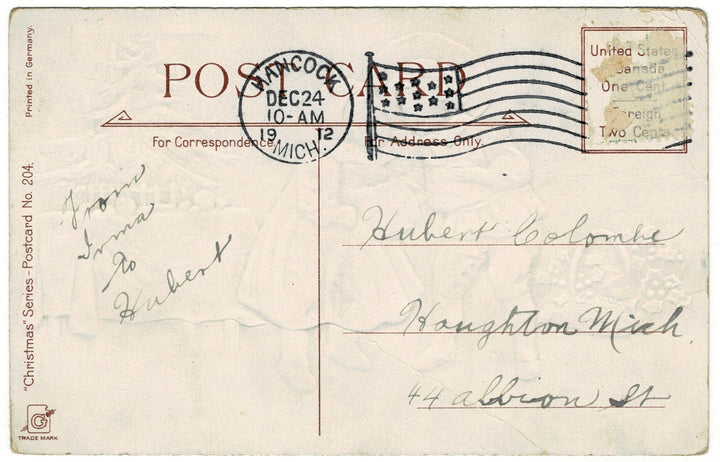 Printed in Germany.
"Christmas" Series - Postcard No. 204.
G
TRADE MARK
POST CARD
For Correspondence.
For Address Only.
HANCOCK
DEC 24
10-AM
19 12
MICH.
United States
Canada
One Cent
Foreign
Two Cents
From
Irma
to
Hubert
Hubert Colombe
Houghton Mich.
44 Albion St